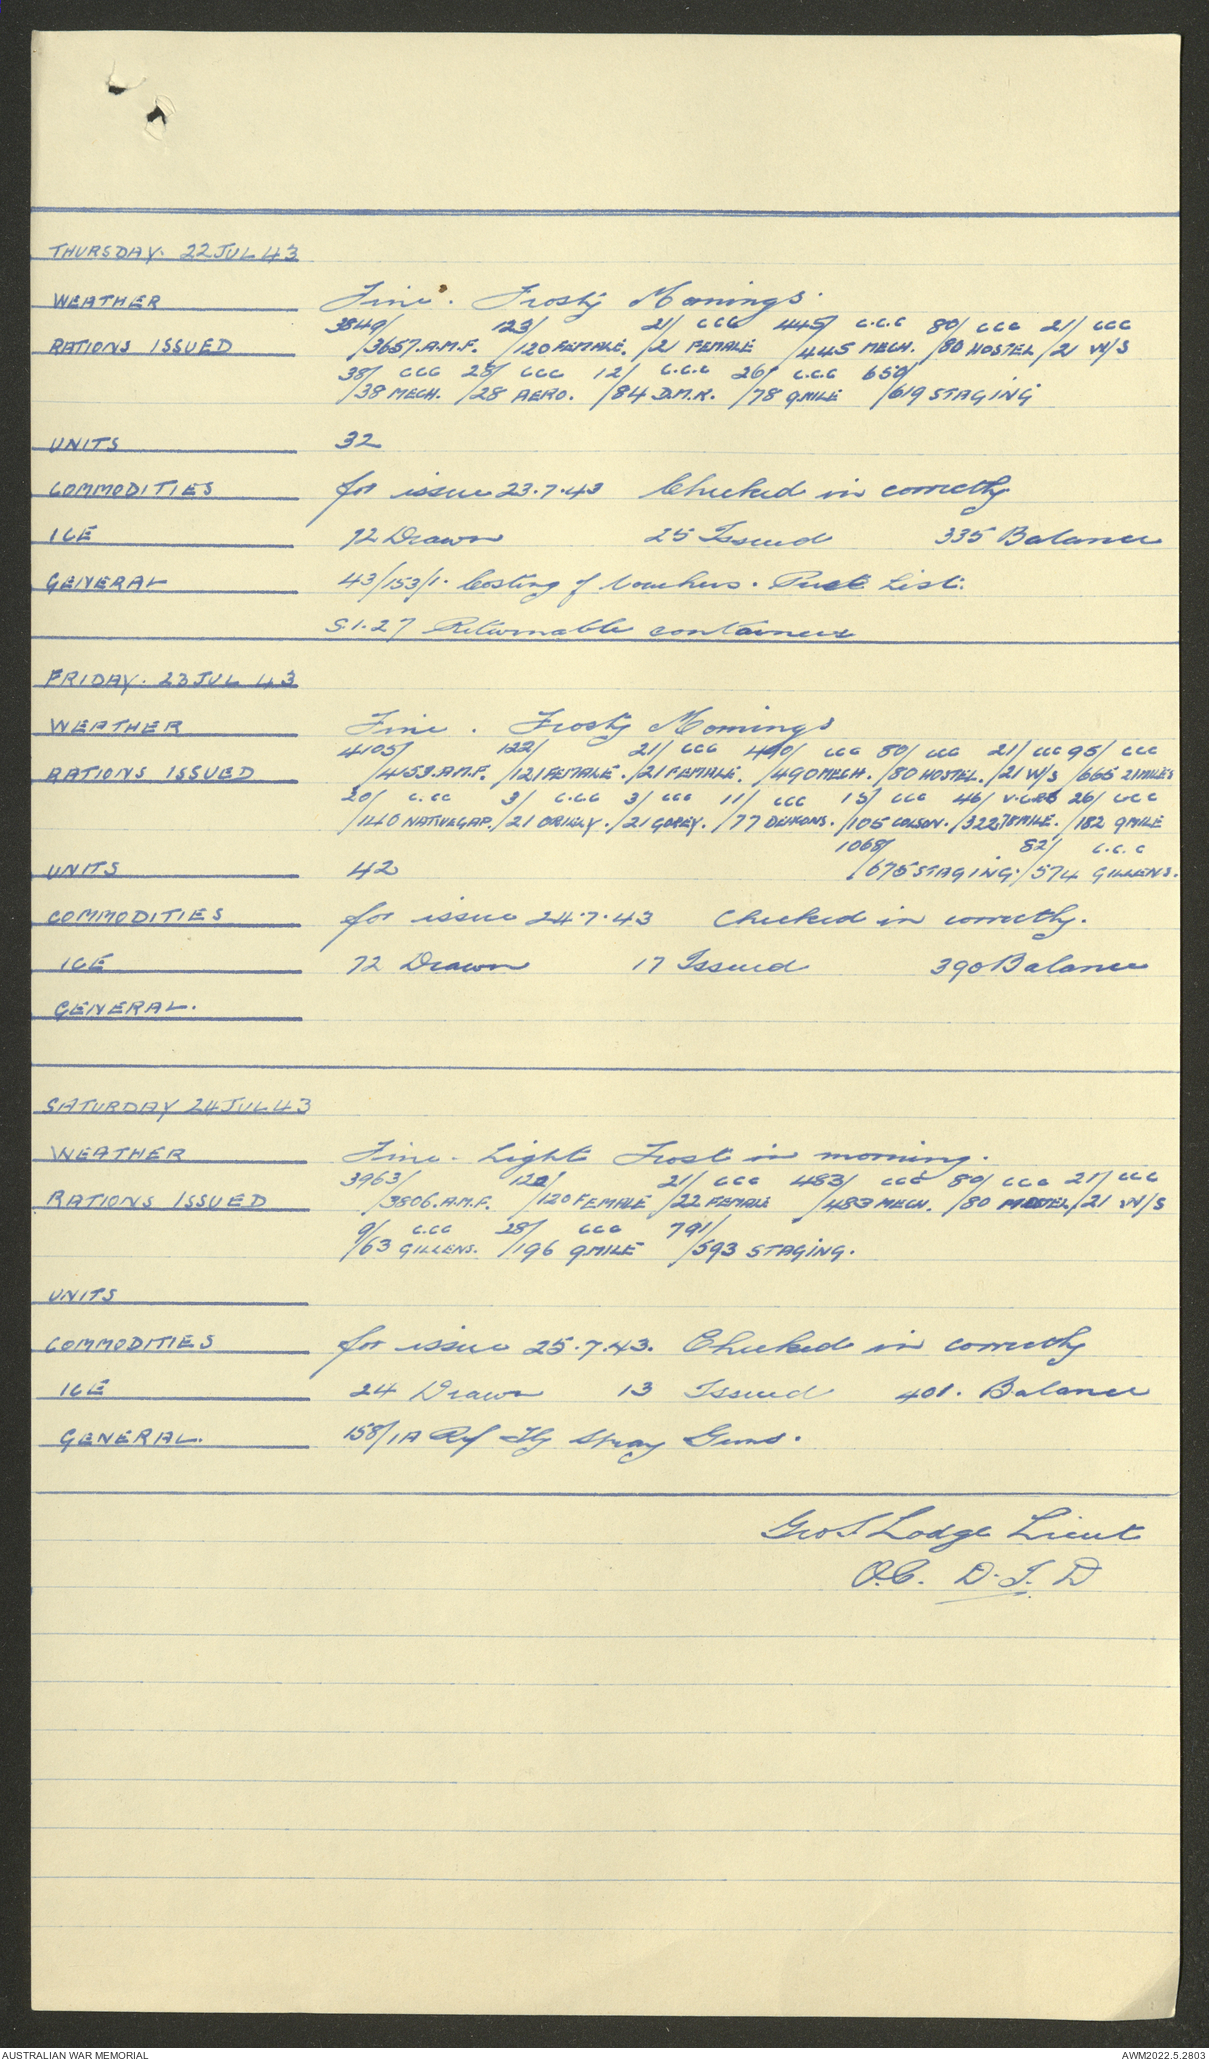 THURSDAY. 22 JUL 43
WEATHER Fine. Frosty Mornings.
3849/ 123/ 21/ CCC 445/ C.C.C 80/ CCC 21/ CCC
RATIONS ISSUED /3657.A.M.F. /120 FEMALE. /21 FEMALE /445 MECH. /80 HOSTEL /21 W/S
38/ CCC 28/ CCC 12/ C.C.C 26/ C.C.C 650/
/38 MECH. /28 AERO. /84 D.M.R. /78 9MILE /619 STAGING
UNITS 32
COMMODITIES for issue 23.7.43 Checked in correctly
ICE 72 Drawn 25 Issued 335 Balance
GENERAL 43/153/1. Costing of Vouchers. List.
S.1.27 Returnable containers
FRIDAY. 23 JUL 43
WEATHER Fine. Frosty Mornings
4105/ 122/ 21/ CCC 490/ CCC 80/ CCC 21/ CCC 95/ CCC
RATIONS ISSUED /4153.A.M.F. /121 FEMALE. /21 FEMALE. /490 MECH. /80 HOSTEL. /21 W/S /665 21 MILES
20/ C.CC 3/ C.CC 3/ CCC 11/ CCC 15/ CCC 46/ 26/ CCC
/140 NATIVE GAP. /21 /21 GOREY. /77 /105 COLSON. /322 78 MILE. /182 9MILE
1068/ 82/ C.C.C
UNITS 42 /675 STAGING. /574 GILLENS.
COMMODITIES for issue 24.7.43 Checked in correctly.
ICE 72 Drawn 17 Issued 390 Balance
GENERAL.
SATURDAY 24 JUL 43
WEATHER Fine. Light Frost in morning.
3963/ 121/ 21/ CCC 483/ CCC 80/ CCC 21/ CCC
RATIONS ISSUED /3806.A.M.F. /120 FEMALE /22 FEMALE /483 MECH. /80 HOSTEL /21 W/S
9/ C.CC 28/ CCC 791/
/63 GILLENS. /196 9MILE /593 STAGING.
UNITS
COMMODITIES for issue 25.7.43. Checked in correctly
ICE 24 Drawn 13 Issued 401. Balance
GENERAL. 158/1A Ref Fly Spray Guns.
Geo S Lodge Lieut
O.C. D.I.D
AUSTRALIAN WAR MEMORIAL AWM2022.5.2803